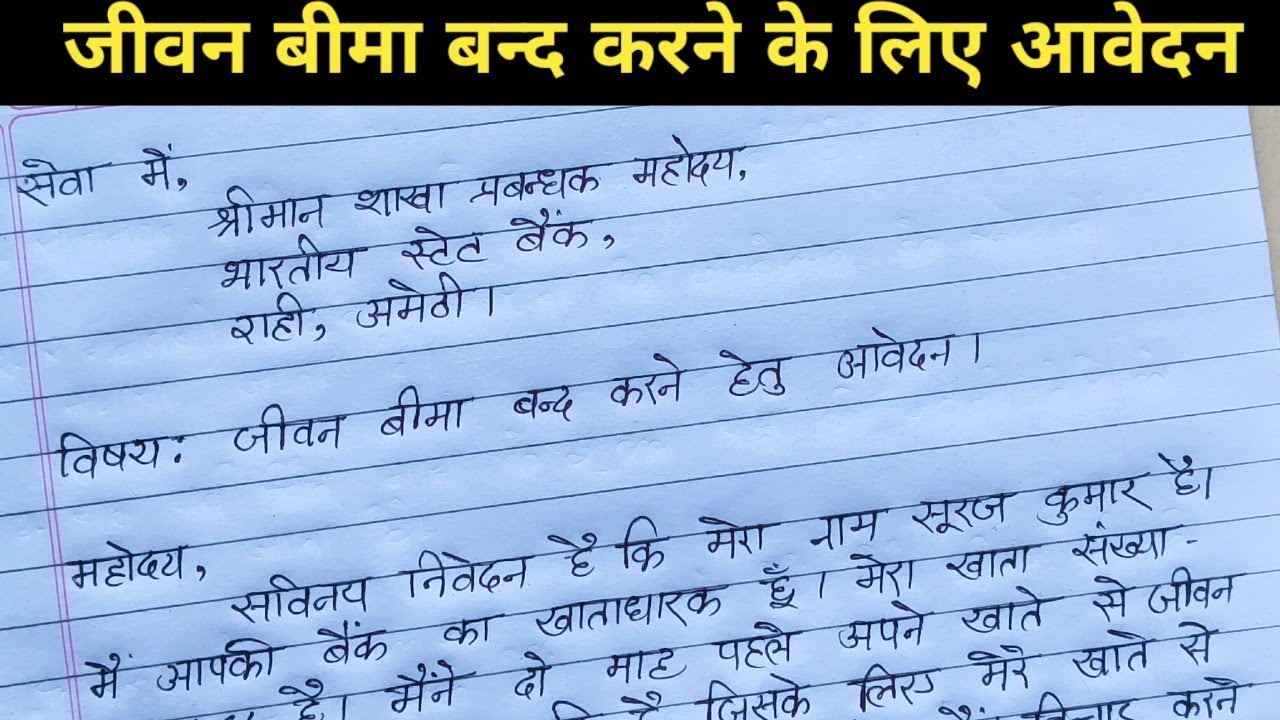 जीवन बीमा बन्द करने के लिए आवेदन
सेवा में,
श्रीमान शाखा प्रबन्धक महोदय,
भारतीय स्टेट बैंक,
राही, अमेठी।
विषय: जीवन बीमा बन्द करने हेतु आवेदन।
महोदय,
सविनय निवेदन है कि मेरा नाम सूरज कुमार है।
मैं आपकी बैंक का खाताधारक हूँ। मेरा खाता संख्या -
है। मैंने दो माह पहले अपने खाते से जीवन
है जिसके लिए मेरे खाते से
करने